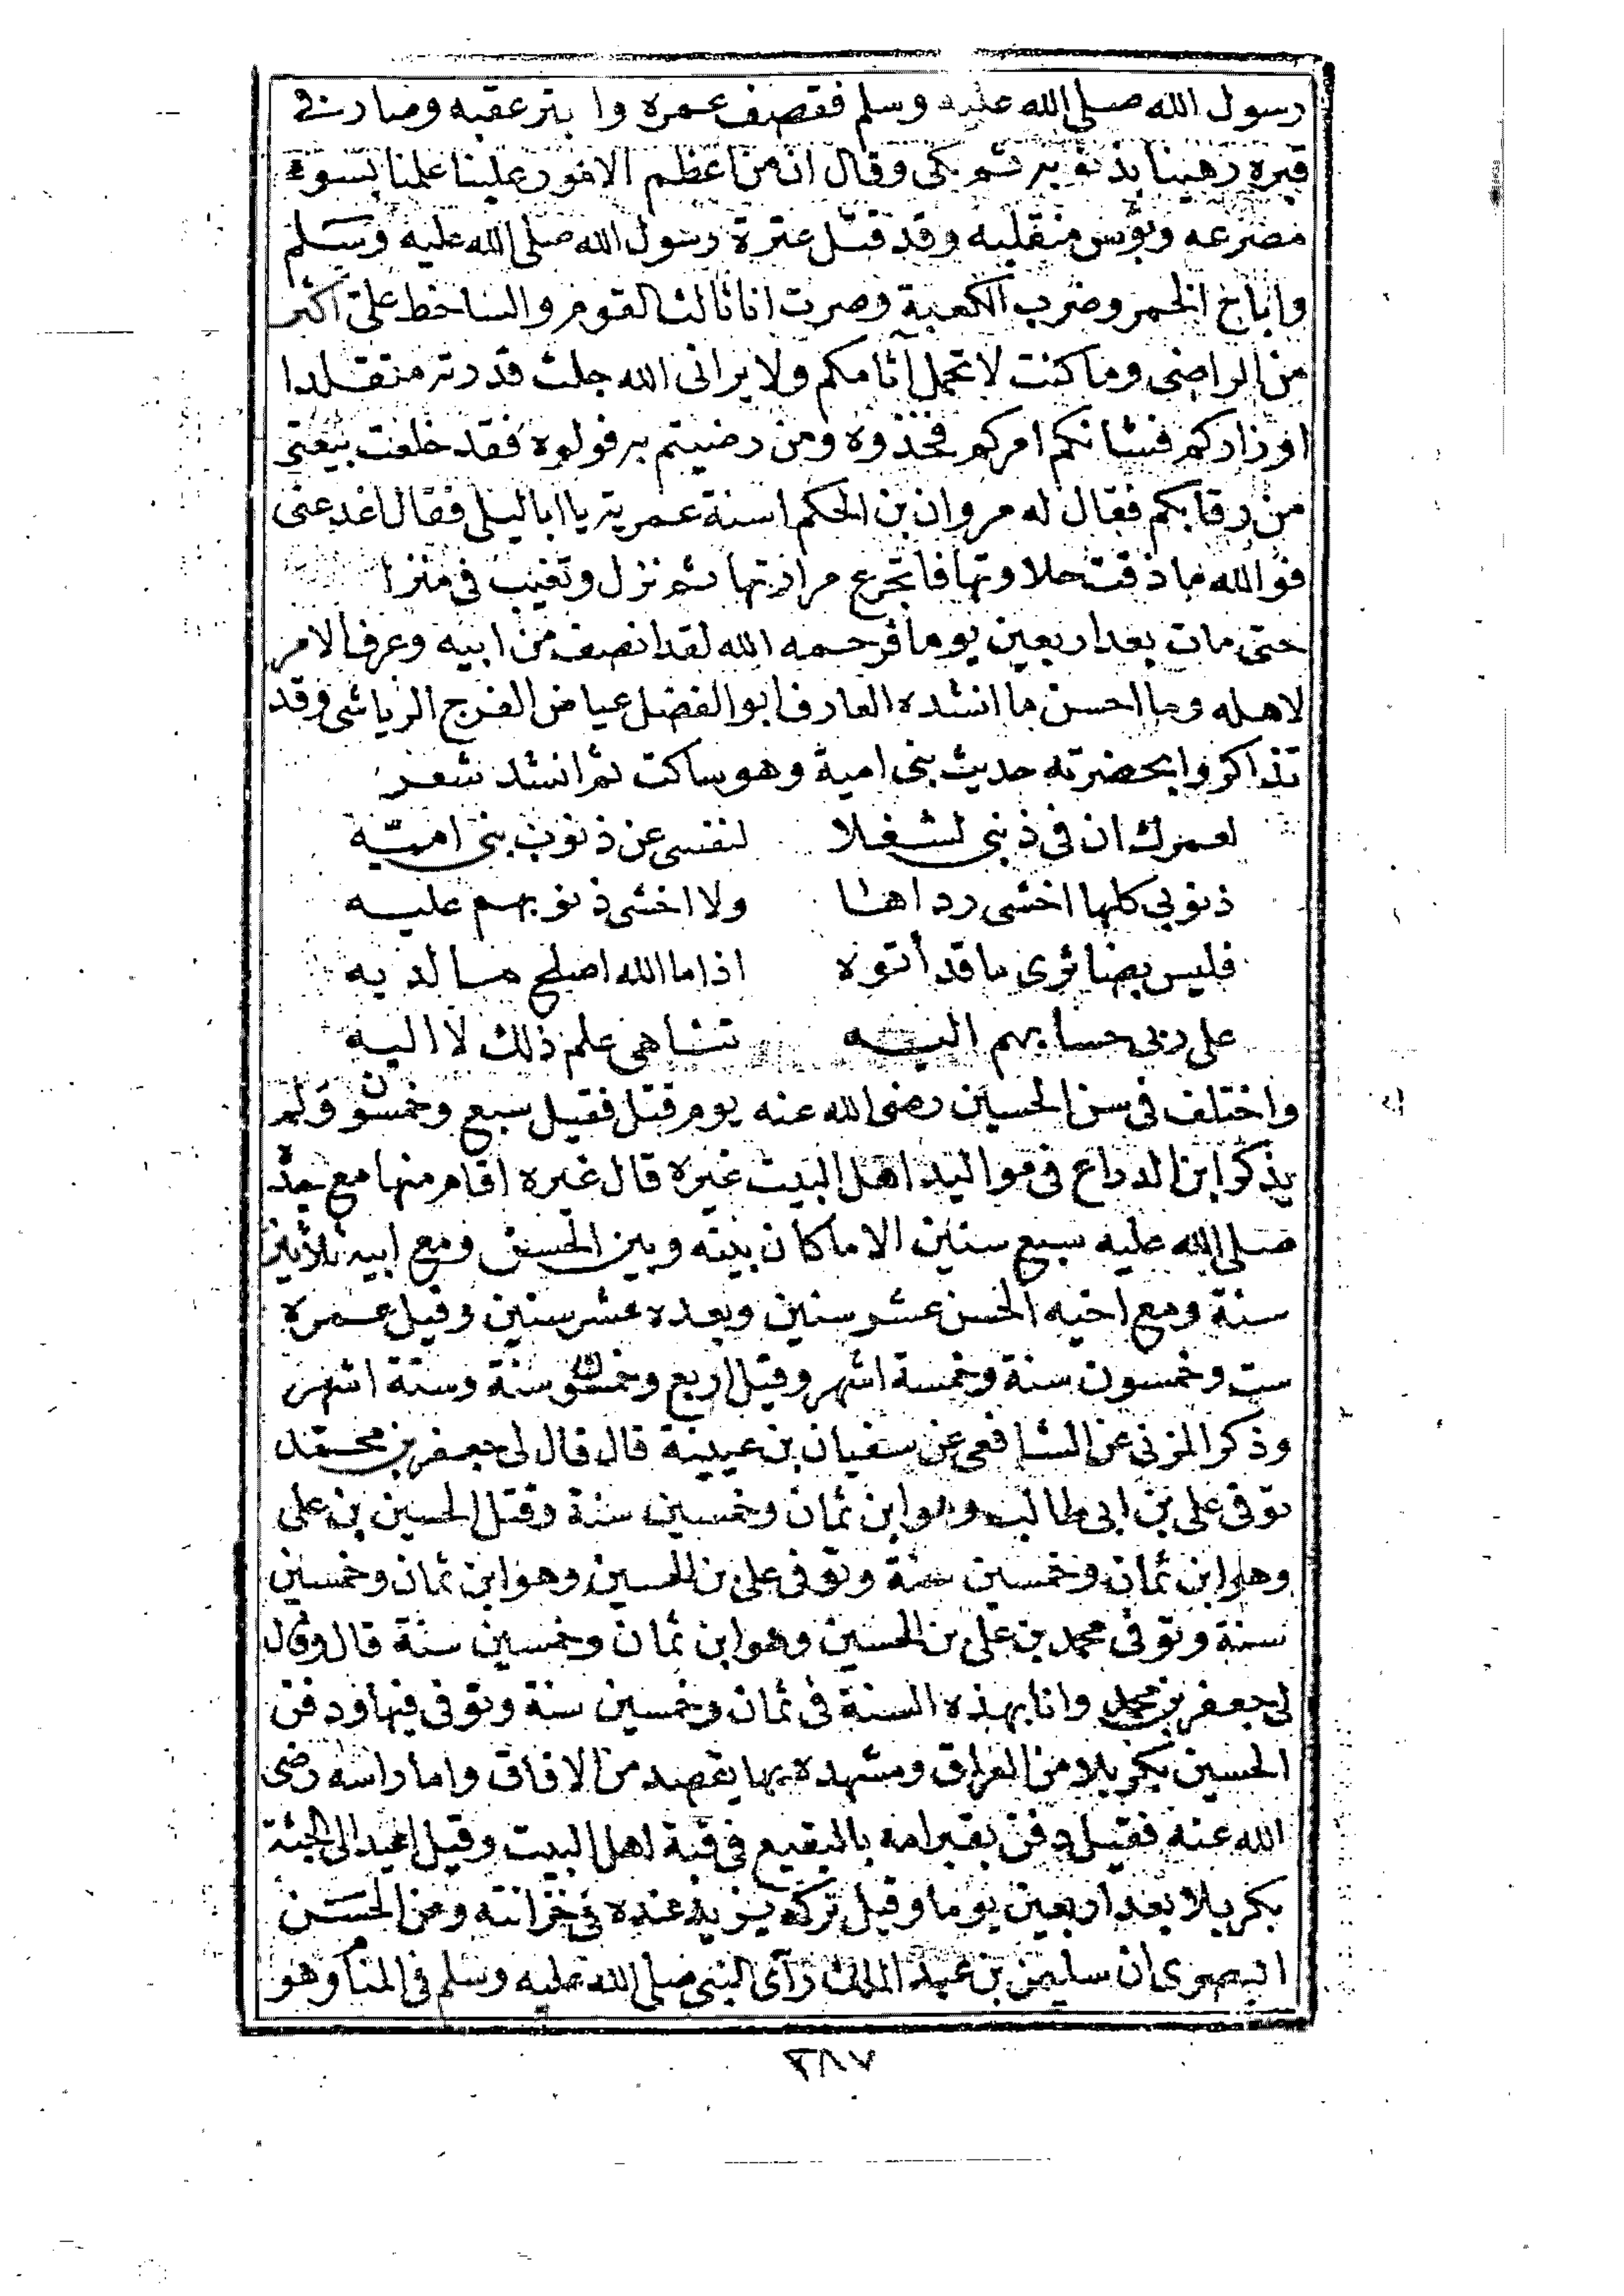 رسول الله صلى الله عليه وسلم فقصف عمره وا بتر عقبه وصار في
قبره رهينا بذنوبه ثم بكى وقال ان من اعظم الامور علينا علمنا بسوء
مصرعه وبؤس منقلبه وقد قتل عترة رسول الله صلى الله عليه وسلم
واباح الخمر وضرب الكعبة وصرت انا ثالث القوم والساخط على اكثر
من الراضى وما كنت لا تحمل آثامكم ولا يرانى الله جلت قدرته متقلدا
اوزاركم فشانكم امركم فخذوه ومن رضيتم به فولوه فقد خلعت بيعتى
من رقابكم فقال له مروان بن الحكم اسنة عمرية يا ابا ليلى فقال اغد عنى
فوالله ما ذقت حلاوتها فاتجرع مرارتها ثم نزل وتغيب فى منزا
حتى مات بعد اربعين يوما فرحمه الله لقد انصف من ابيه وعرف الامر
لاهله وما احسن ما انشده العارف ابو الفضل عياض الفرج الرياشى وقد
تذاكروا بحضرته حديث بنى امية وهو ساكت ثم انشد شعر
لعمرك ان فى ذنبى لشغلا لنفسى عن ذنوب بنى اميّة
ذنوبى كلها اخشى رداها ولا اخشى ذنوبهم عليه
فليس بضائرى ما قد أتوه اذا ما الله اصلح ما لديه
على ربى حسابهم اليه تناهى علم ذلك لا اليه
واختلف فى سن الحسين رضى الله عنه يوم قتل فقيل سبع وخمسون ولم
يذكر ابن الدراع فى مواليد اهل البيت غيره قال غيره اقام منها مع جدّه
صلى الله عليه سبع سنين الا ما كان بينه وبين الحسن ومع ابيه ثلاثين
سنة ومع اخيه الحسن عشر سنين وبعده عشر سنين وقيل عمره
ست وخمسون سنة وخمسة اشهر وقيل اربع وخمسون سنة وستة اشهر
وذكر المزنى عن الشافعى عن سفيان بن عيينة قال قال لى جعفر بن محمد
توفى على بن ابى طالب وهو ابن ثمان وخمسين سنة وقتل الحسين بن على
وهو ابن ثمان وخمسين سنة وتوفى على بن الحسين وهو ابن ثمان وخمسين
سنة وتوفى محمد بن على بن الحسين وهو ابن ثمان وخمسين سنة قال وقال
لى جعفر بن محمد وانا بهذه السنة فى ثمان وخمسين سنة وتوفى فيها ودفن
الحسين بكربلا من العراق ومشهده بها يقصد من الافاق واما راسه رضى
الله عنه فقيل دفن بقبر امه بالبقيع فى قبة اهل البيت وقيل اعيد الى الجثة
بكربلا بعد اربعين يوما وقيل تركه يزيد عنده فى خزانته ومن الحسن
البصرى ان سليمن بن عبد الملك رآى النبى صلى الله عليه وسلم فى المنام وهو
٣٨٧